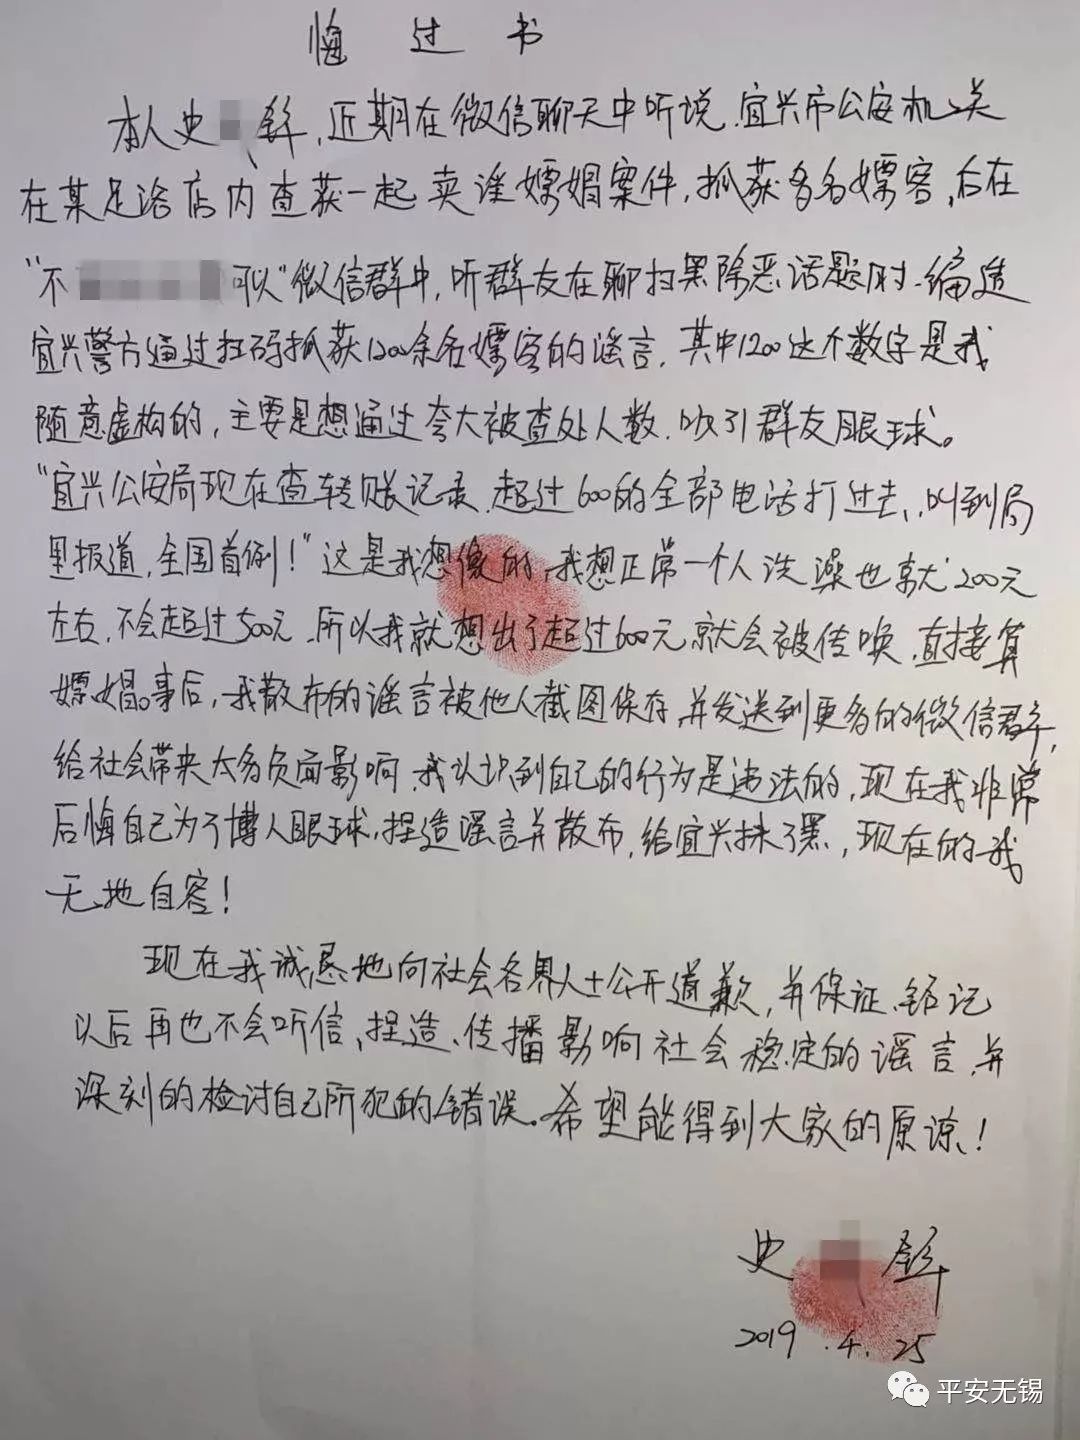 悔过书
本人史 锋，近期在微信聊天中听说，宜兴市公安机关
在某足浴店内查获一起卖淫嫖娼案件，抓获多名嫖客，后在
“不 可以”微信群中，听群友在聊扫黑除恶话题时，编造
宜兴警方通过扫码抓获1200余名嫖客的谣言，其中1200这个数字是我
随意虚构的，主要是想通过夸大被查处人数，吸引群友眼球。
“宜兴公安局现在查转账记录，超过600的全部电话打过去，叫到局
里报道，全国首例！”这是我想像的，我想正常一个人洗澡也就200元
左右，不会超过500元，所以我就想出了超过600元就会被传唤，直接算
嫖娼。事后，我散布的谣言被他人截图保存，并发送到更多的微信群，
给社会带来太多负面影响，我认识到自己的行为是违法的，现在我非常
后悔自己为了博人眼球，捏造谣言并散布，给宜兴抹了黑，现在的我
无地自容！
现在我诚恳地向社会各界人士公开道歉，并保证、铭记
以后再也不会听信、捏造、传播影响社会稳定的谣言，并
深刻的检讨自己所犯的错误。希望能得到大家的原谅！
史 锋
2019.4.25
平安无锡